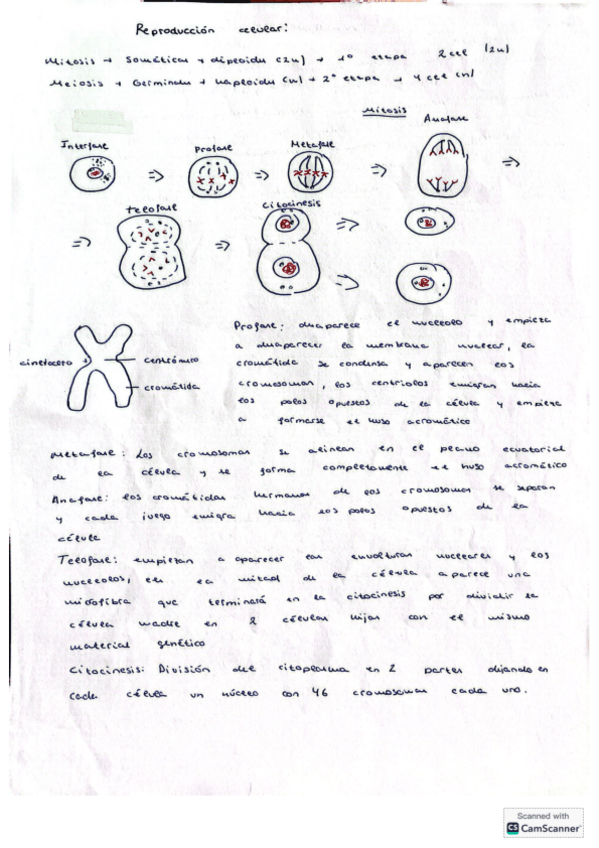 Reproducción celular:
Mitosis → Somáticas → diploide (2n) → 1º etapa 2 cel (2n)
Meiosis → Germinales → haploide (n) → 2º etapa → 4 cel (n)
Mitosis
Interfase Profase Metafase Anafase
Telofase Citocinesis
cinetocoro centrómero
cromátida
Profase: desaparece el nucleolo y empieza
a desaparecer la membrana nuclear, la
cromátida se condensa y aparecen los
cromosomas, los centriolos emigran hacia
los polos opuestos de la célula y empieza
a formarse el huso acromático
Metafase: Los cromosomas se alinean en el plano ecuatorial
de la célula y se forma completamente el huso acromático
Anafase: los cromátidas hermanas de los cromosomas se separan
y cada juego emigra hacia los polos opuestos de la
célula
Telofase: empiezan a aparecer las envolturas nucleares y los
nucleolos, en la mitad de la célula aparece una
microfibra que terminará en la citocinesis por dividir la
célula madre en 2 células hijas con el mismo
material genético
Citocinesis: División del citoplasma en 2 partes dejando en
cada célula un núcleo con 46 cromosomas cada uno.
Scanned with
CS CamScanner